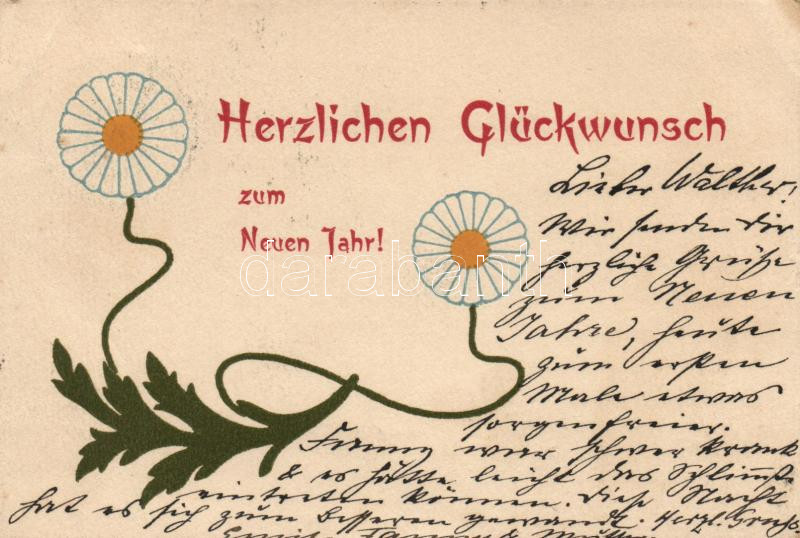 Herzlichen Glückwunsch
zum
Neuen Jahr!
Lieber Walther!
Wir senden dir
herzliche Grüße
zum Neuen
Jahre, heute
zum ersten
Male etwas
sorgenfreier.
Fanny war schwer krank
& es hätte leicht das Schlimmste
eintreten können. Diese Nacht
hat es sich zum Besseren gewandt. Herzl. Gruß
Fanny &
darabanth